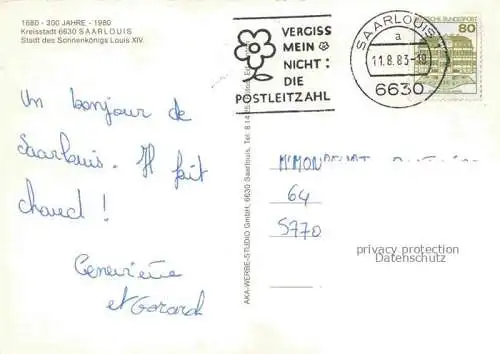 1680 - 300 JAHRE - 1980
Kreisstadt 6630 SAARLOUIS
Stadt des Sonnenkönigs Louis XIV.
VERGISS
MEIN
NICHT:
DIE
POSTLEITZAHL
SAARLOUIS 1
a
11.8.83-18
6630
DEUTSCHE BUNDESPOST
80
Un bonjour de
Saarlouis. Il fait
chaud !
Geneviève
et Gerard
64
5770
AKA-WERBE-STUDIO GmbH, 6630 Saarlouis, Tel.
privacy protection
Datenschutz